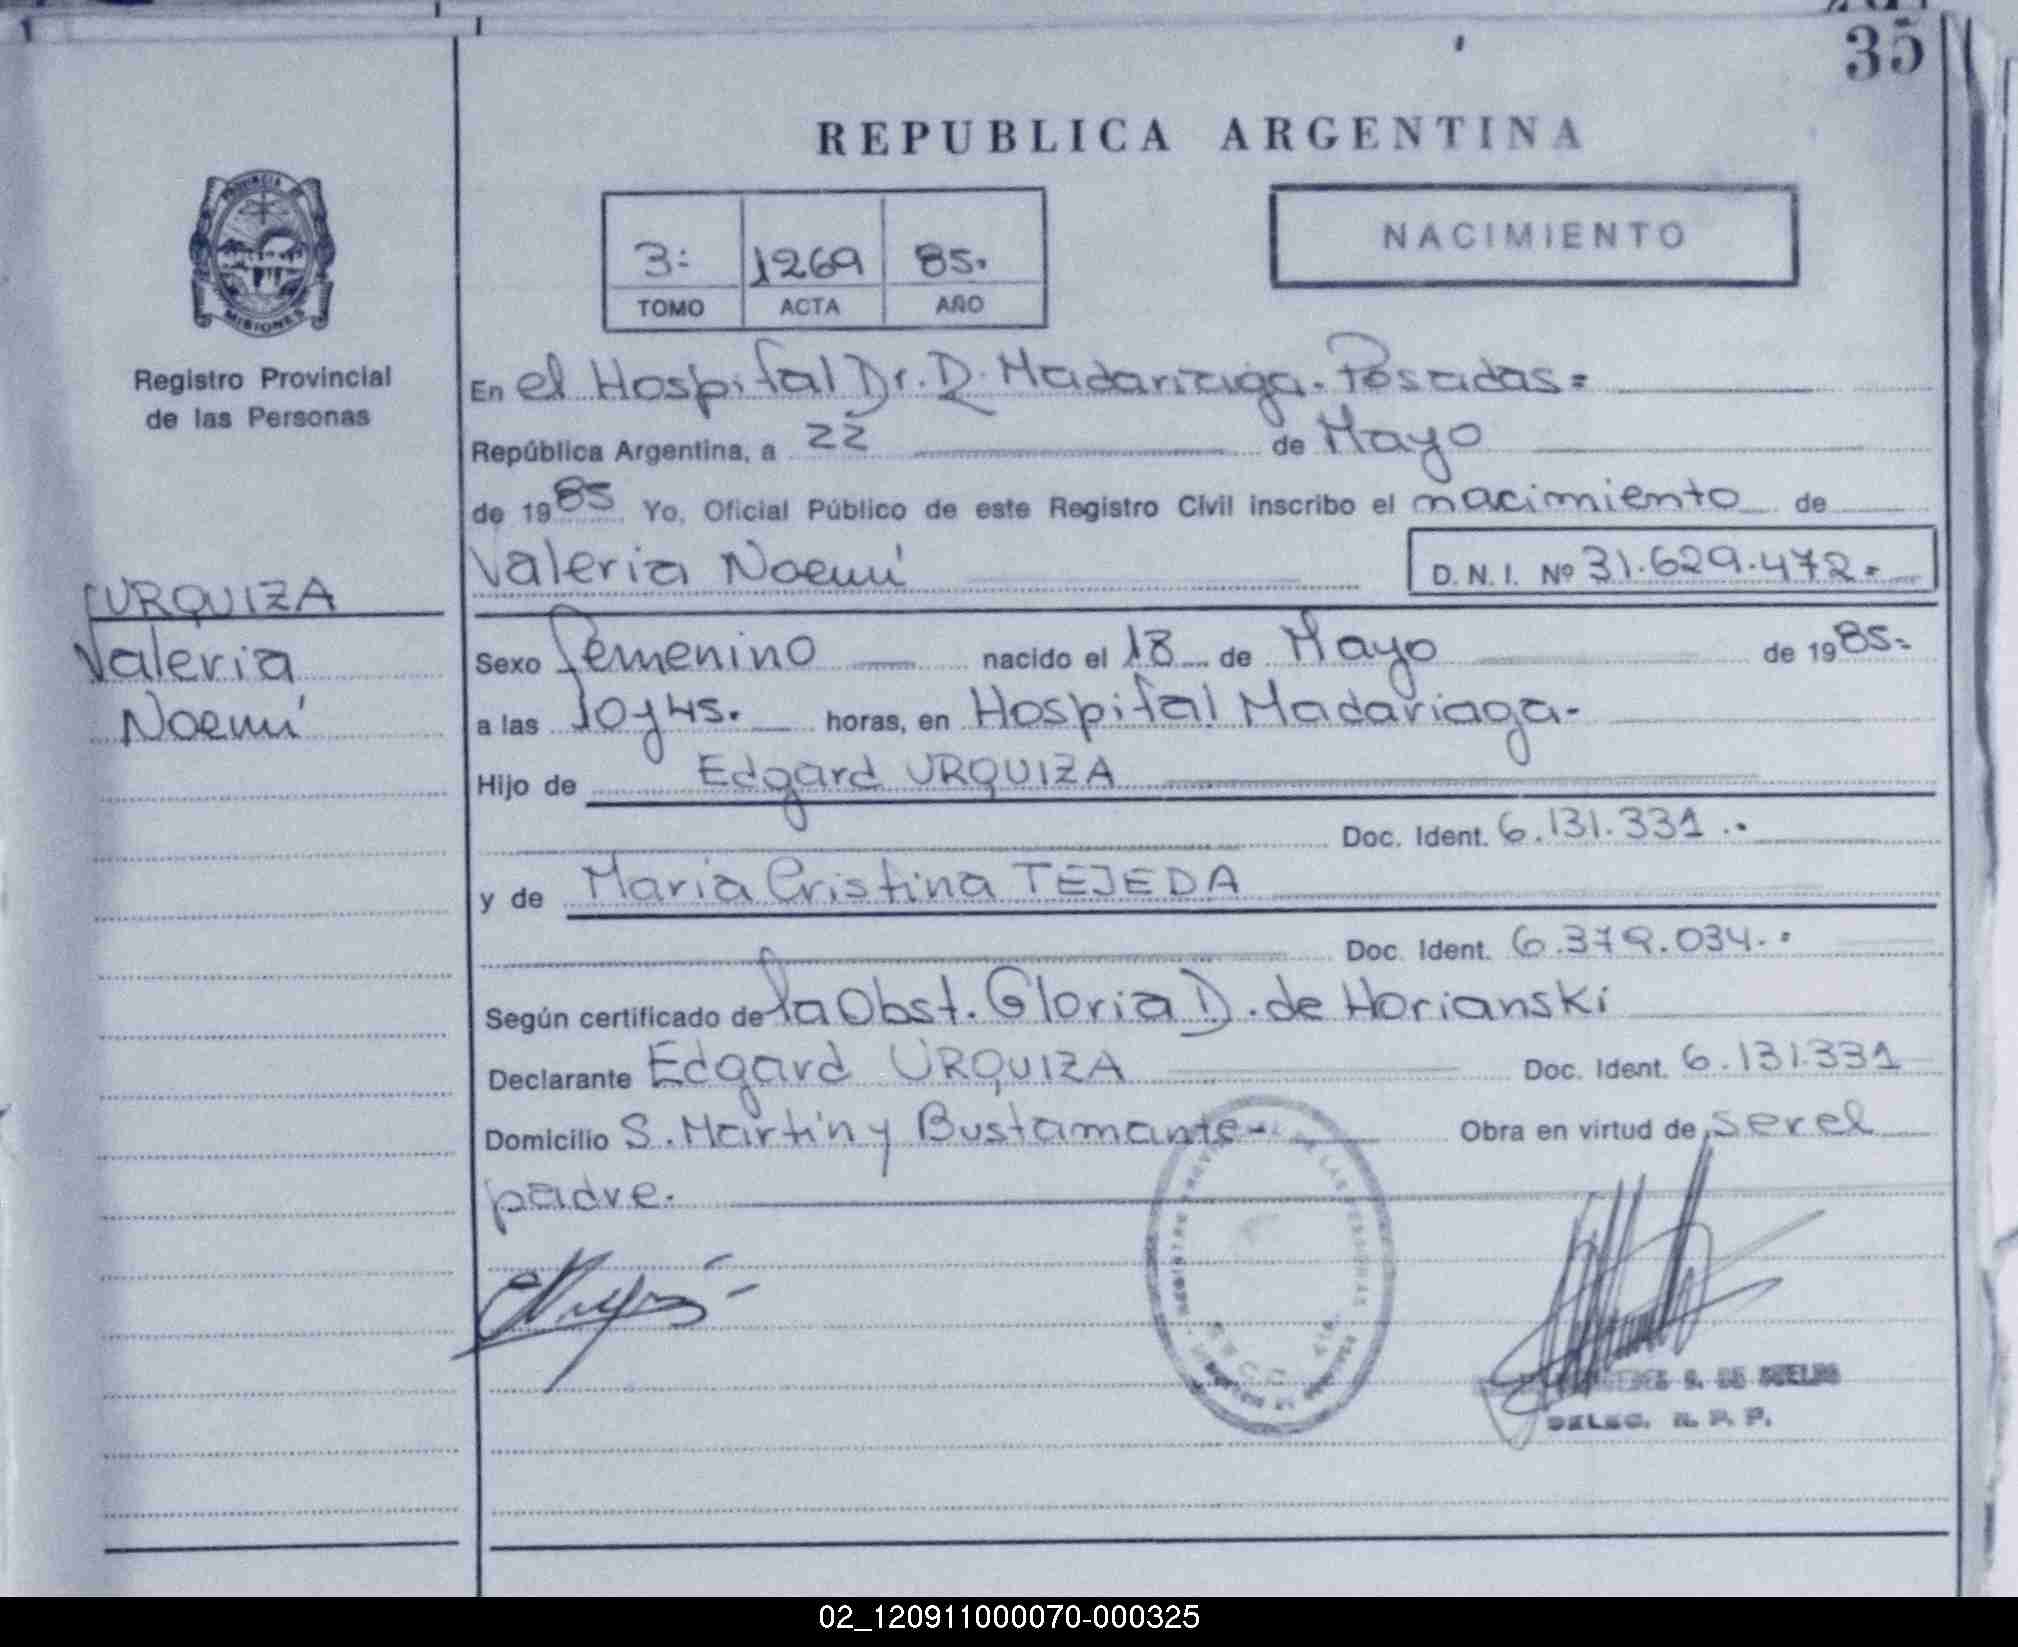 35
REPUBLICA ARGENTINA
PROVINCIA DE
MISIONES
Registro Provincial
de las Personas
3: 1269 85.
TOMO ACTA AÑO
NACIMIENTO
En el Hospital Dr. R. Madariaga. Posadas=
República Argentina, a 22 de Mayo
de 1985 Yo, Oficial Público de este Registro Civil inscribo el nacimiento de
Valeria Noemí D. N. I. Nº 31.629.472.-
URQUIZA
Valeria
Noemí
Sexo femenino nacido el 18 de Mayo de 1985.-
a las 10y45. horas, en Hospital Madariaga-
Hijo de Edgard URQUIZA
Doc. Ident. 6.131.331.-
y de María Cristina TEJEDA
Doc. Ident. 6.379.034.-
Según certificado de la Obst. Gloria D. de Horianski
Declarante Edgard URQUIZA Doc. Ident. 6.131.331
Domicilio S. Martín y Bustamante- Obra en virtud de ser el
padre.
REGISTRO DE LAS PERSONAS
S. DE
DELEG. R. P. P.
02_120911000070-000325